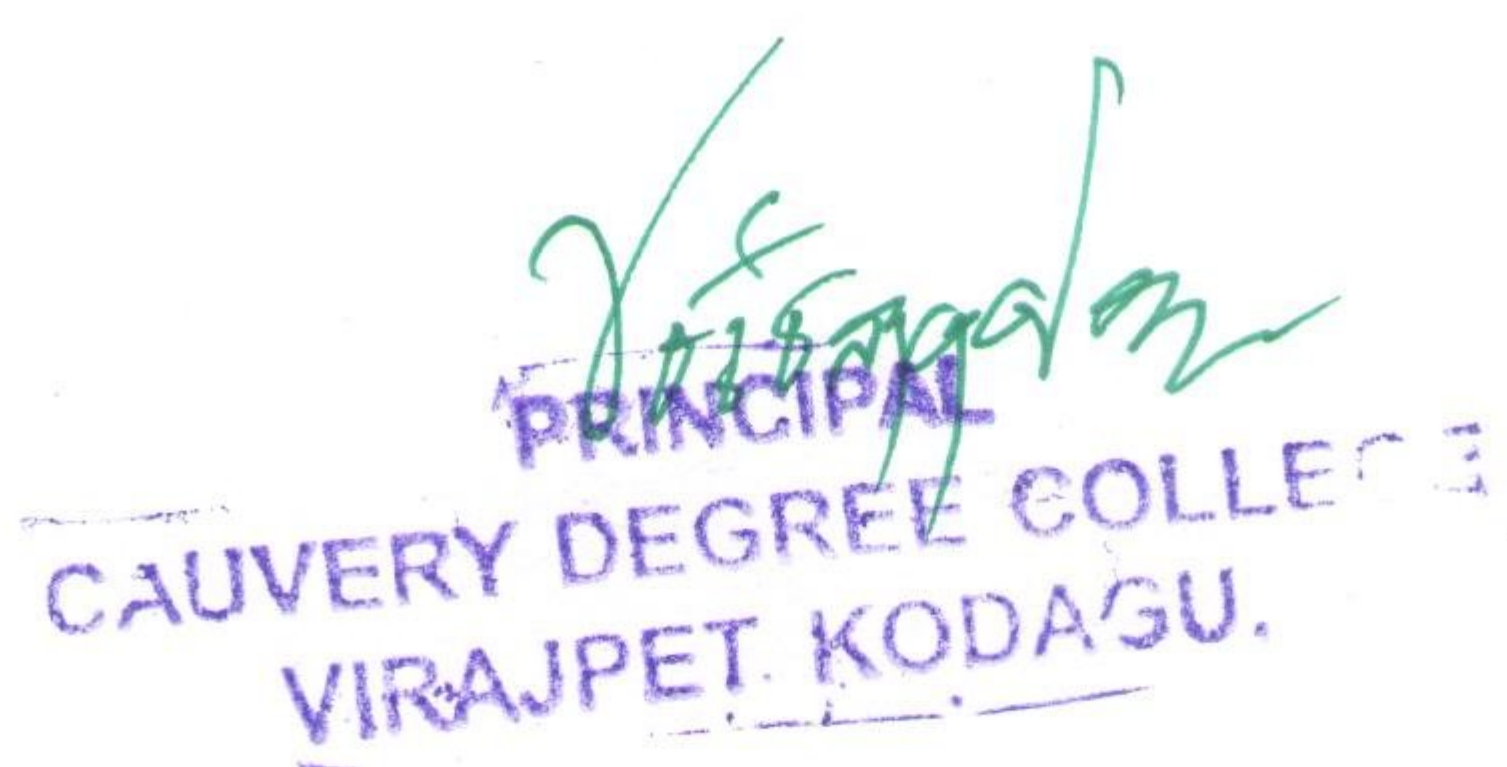 PRINCIPAL
CAUVERY DEGREE COLLEGE
VIRAJPET. KODAGU.